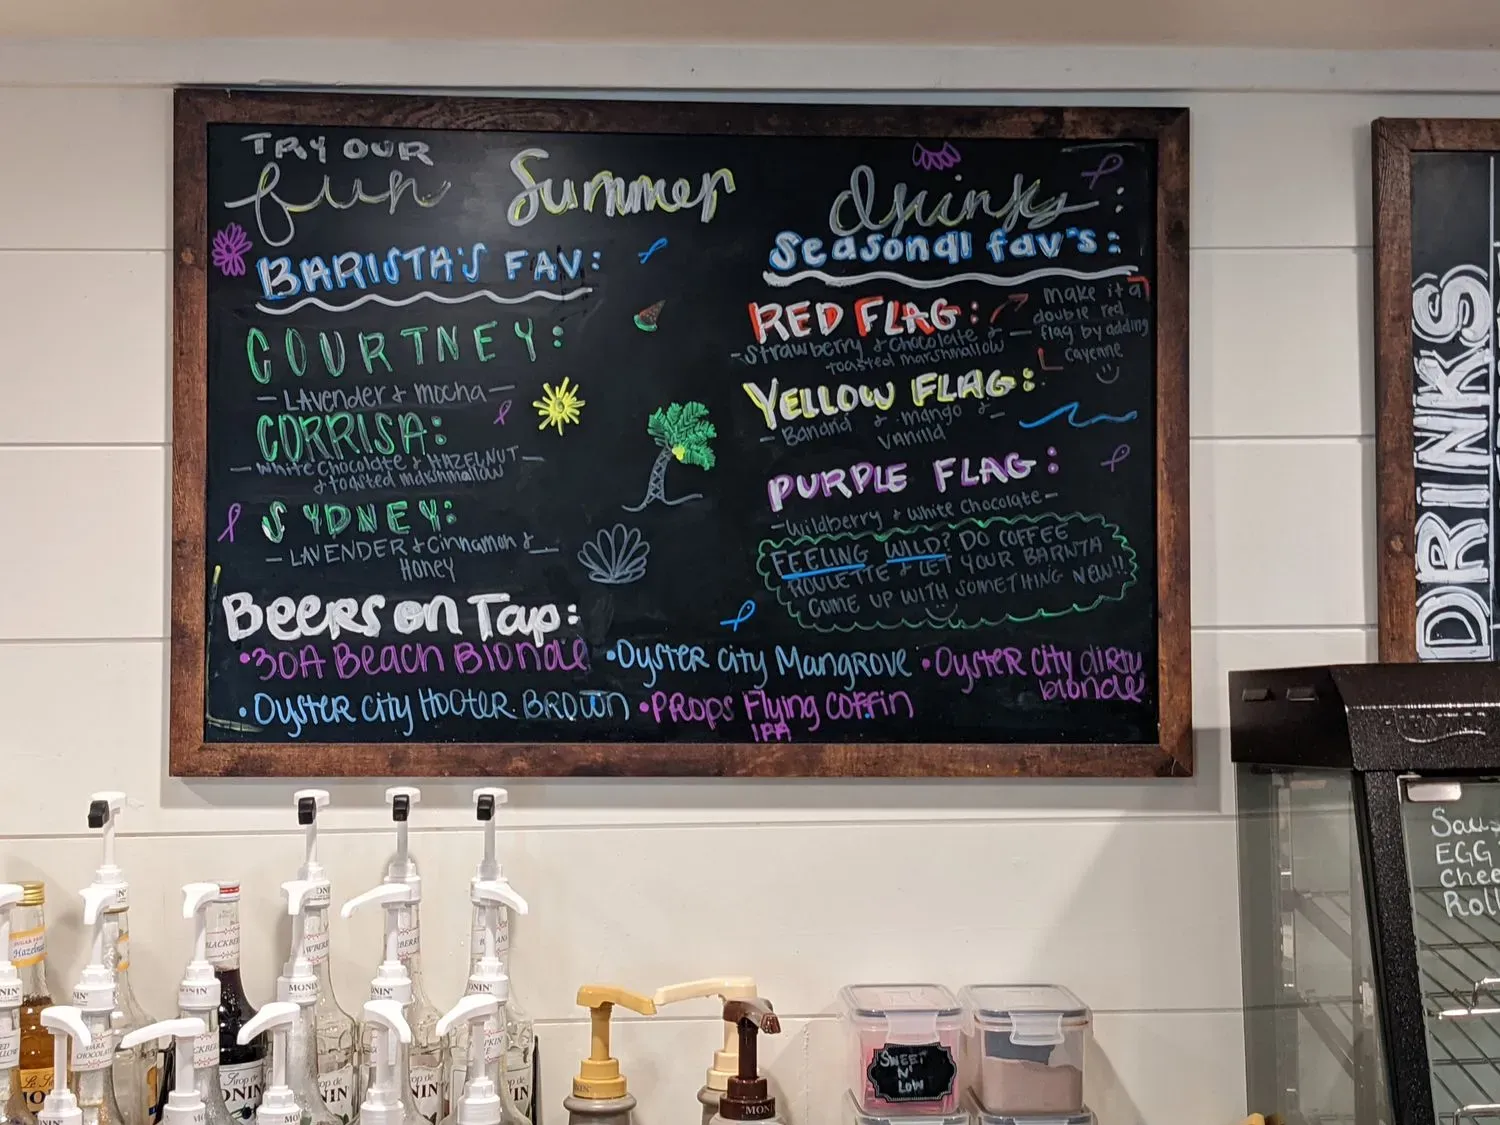 TRY OUR
fun Summer drinks:
BARISTA'S FAV:
COURTNEY:
- LAVender & mocha -
CORRISA:
- White Chocolate & HAZELNUT -
& toasted marshmallow
SYDNEY:
- LAVENDER & Cinnamon & -
Honey
Seasonal fav's:
RED FLAG:
- Strawberry & Chocolate & -
toasted marshmallow
make it a
double red
flag by adding
cayenne
YELLOW FLAG:
- Banana & mango & -
vanilla
PURPLE FLAG:
- Wildberry & White Chocolate -
FEELING WILD? DO COFFEE
ROULETTE & LET YOUR BARISTA
COME UP WITH SOMETHING NEW!!
Beers on Tap:
• 30A Beach Blonde • Oyster city Mangrove • Oyster city dirty
blonde
• Oyster city Hooter Brown • Props Flying coffin
IPA
DRINKS
EGG
Roll
SWEET
N'
LOW
Hazelnut
DARK
CHOCOLATE
MONIN